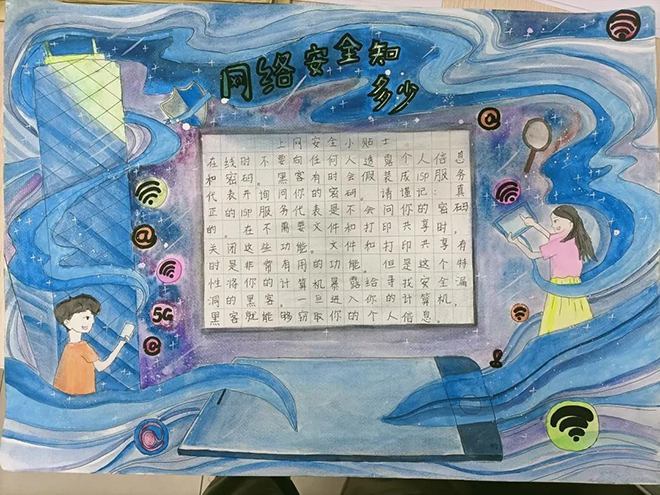 网络安全知
多少
上网安全小贴士
在线时不要向任何人透露个人信息
和密码。黑客有时会假装成ISP服务
代表并询问你的密码。请谨记：真
正的ISP服务代表是不会问你的密码
的。在不需要文件和打印共享时，
关闭这些功能。文件和打印共享有
时是非常有用的功能，但是这个特
性将你的计算机暴露给寻找安全漏
洞的黑客。一旦进入你的计算机，
黑客就能够窃取你的个人信息。
@
@
5G
@
@